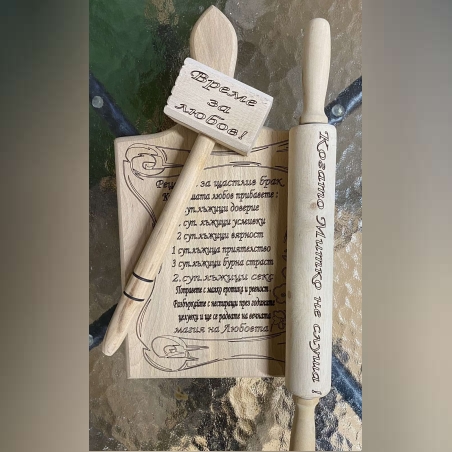 Време
за
любов!
за щастлив брак
любов прибавете :
суп.лъжици доверие
суп.лъжици усмивки
2 суп.лъжици вярност
1 суп.лъжица приятелство
3 суп.лъжици бурна страст
2.суп.лъжици секс
Поправете с малко еротика и ревност.
Разбъркайте с
целувки и ще се радвате на вечната
магия на Любовта!
Когато Митко не слуша!